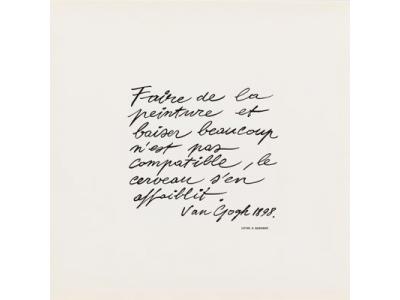 Faire de la
peinture et
baiser beaucoup
n'est pas
compatible, le
cerveau s'en
affaiblit.
Van Gogh 1898.
LETTRE A BERNARD